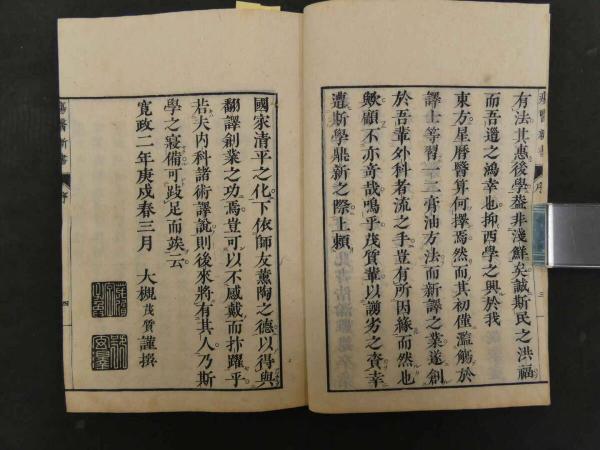 有法其惠後學蓋非淺鮮矣誠斯民之洪福
而吾道之鴻幸也抑西學之興於我
東方星曆醫算何擇焉然而其初僅濫觴於
譯士等習一二膏油方法而新譯之業遂創
於吾輩外科者流之手豈有所因緣而然也
歟顧不亦奇哉嗚乎茂質輩以謭劣之資幸
遭斯學鼎新之際上頼
國家清平之化下依師友薰陶之德以得與
翻譯創業之功焉豈可以不感戴而抃躍乎
若夫内科諸術譯說則後來將有其人乃斯
學之寢備可跂足而竢云
寛政二年庚戌春三月　大槻茂質謹撰
瘍醫新書
序
三
四